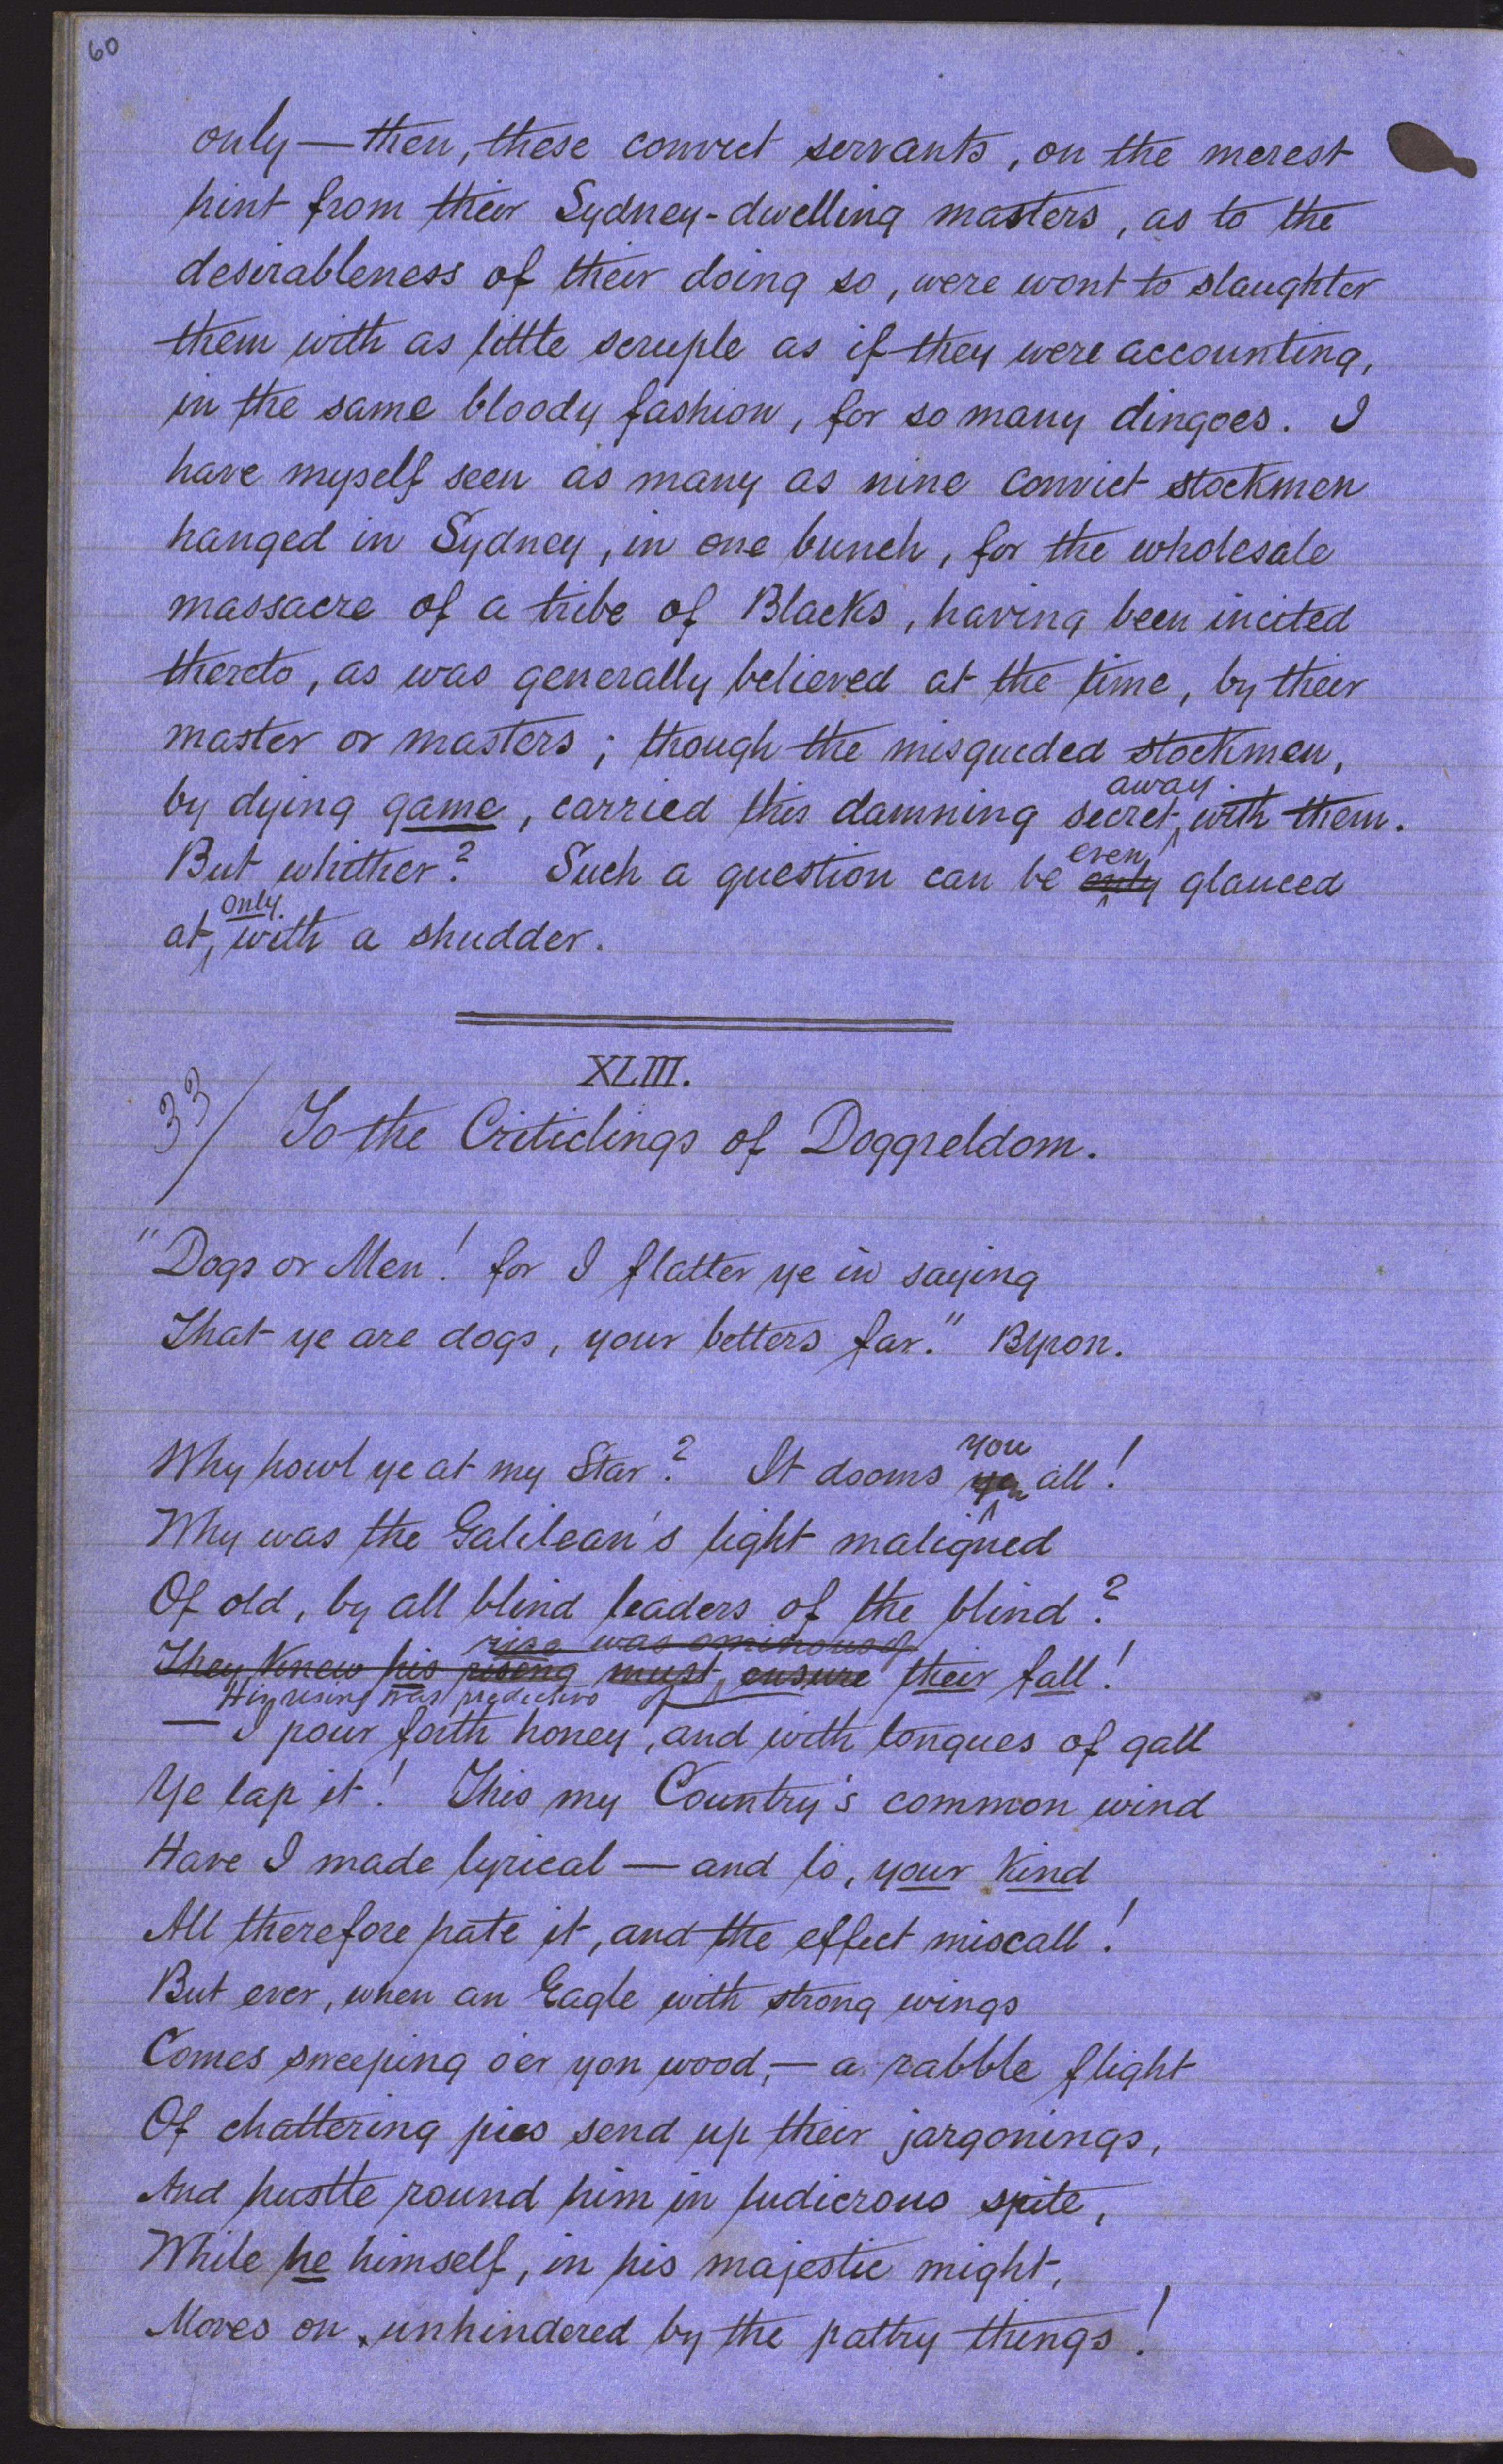 60
only — then, these convict servants, on the merest
hint from their Sydney-dwelling masters, as to the
desirableness of their doing so, were wont to slaughter
them with as little scruple as if they were accounting,
in the same bloody fashion, for so many dingoes. I
have myself seen as many as nine convict stockmen
hanged in Sydney, in one bunch, for the wholesale
massacre of a tribe of Blacks, having been incited
thereto, as was generally believed at the time, by their
master or masters; though the misguided stockmen,
by dying game, carried this damning secret away with them.
But whither? Such a question can be only even glanced
at, only with a shudder.
XLIII.
33/ To the Criticlings of Doggreldom.
"Dogs or Men! for I flatter ye in saying
That ye are dogs, your betters far." Byron.
Why howl ye at my Star? It dooms ye you all!
Why was the Galilean's light maligned
Of old, by all blind leaders of the blind?
rise was ominous of
They knew his rising must ensure their fall!
His rising was predictive of
— I pour forth honey, and with tongues of gall
Ye lap it! This my Country's common wind
Have I made lyrical — and lo, your kind
All therefore hate it, and the effect miscall!
But ever, when an Eagle with strong wings
Comes sweeping o'er yon wood, — a rabble flight
Of chattering pies send up their jargonings,
And hustle round him in ludicrous spite,
While he himself, in his majestic might,
Moves on, unhindered by the paltry things!